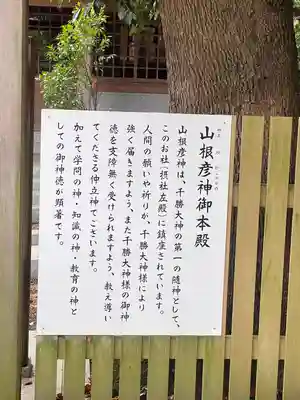 山根彦神御本殿
山根彦神は、千勝大神の第一の随神として、
このお社（摂社左殿）に鎮座されています。
人間の願いや祈りが、千勝大神様により
強く届きますよう、また千勝大神様の御神
徳を支障無く受けられますよう、教え導い
てくださる仲立神でございます。
加えて学問の神・知識の神・教育の神と
しての御神徳が顕著です。